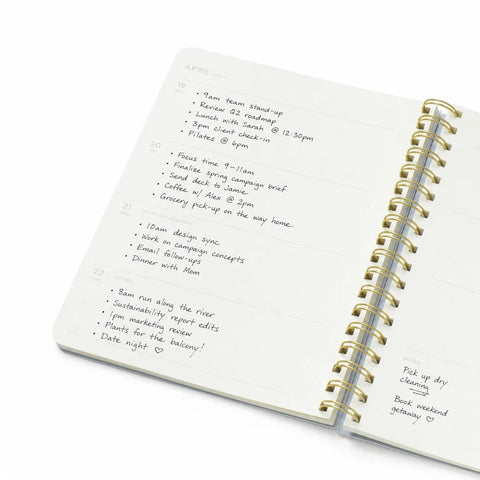 APRIL
19
MON
• 9am team stand-up
• Review Q2 roadmap
• Lunch with Sarah @ 12:30pm
• 3pm client check-in
• Pilates @ 6pm
20
• Focus time 9–11am
• Finalize spring campaign brief
• Send deck to Jamie
• Coffee w/ Alex @ 2pm
• Grocery pick-up on the way home
21
• 10am design sync
• Work on campaign concepts
• Email follow-ups
• Dinner with Mom
22
• 8am run along the river
• Sustainability report edits
• 1pm marketing review
• Plants for the balcony!
• Date night ♡
NOTES
Pick up dry
cleaning
Book weekend
getaway ♡